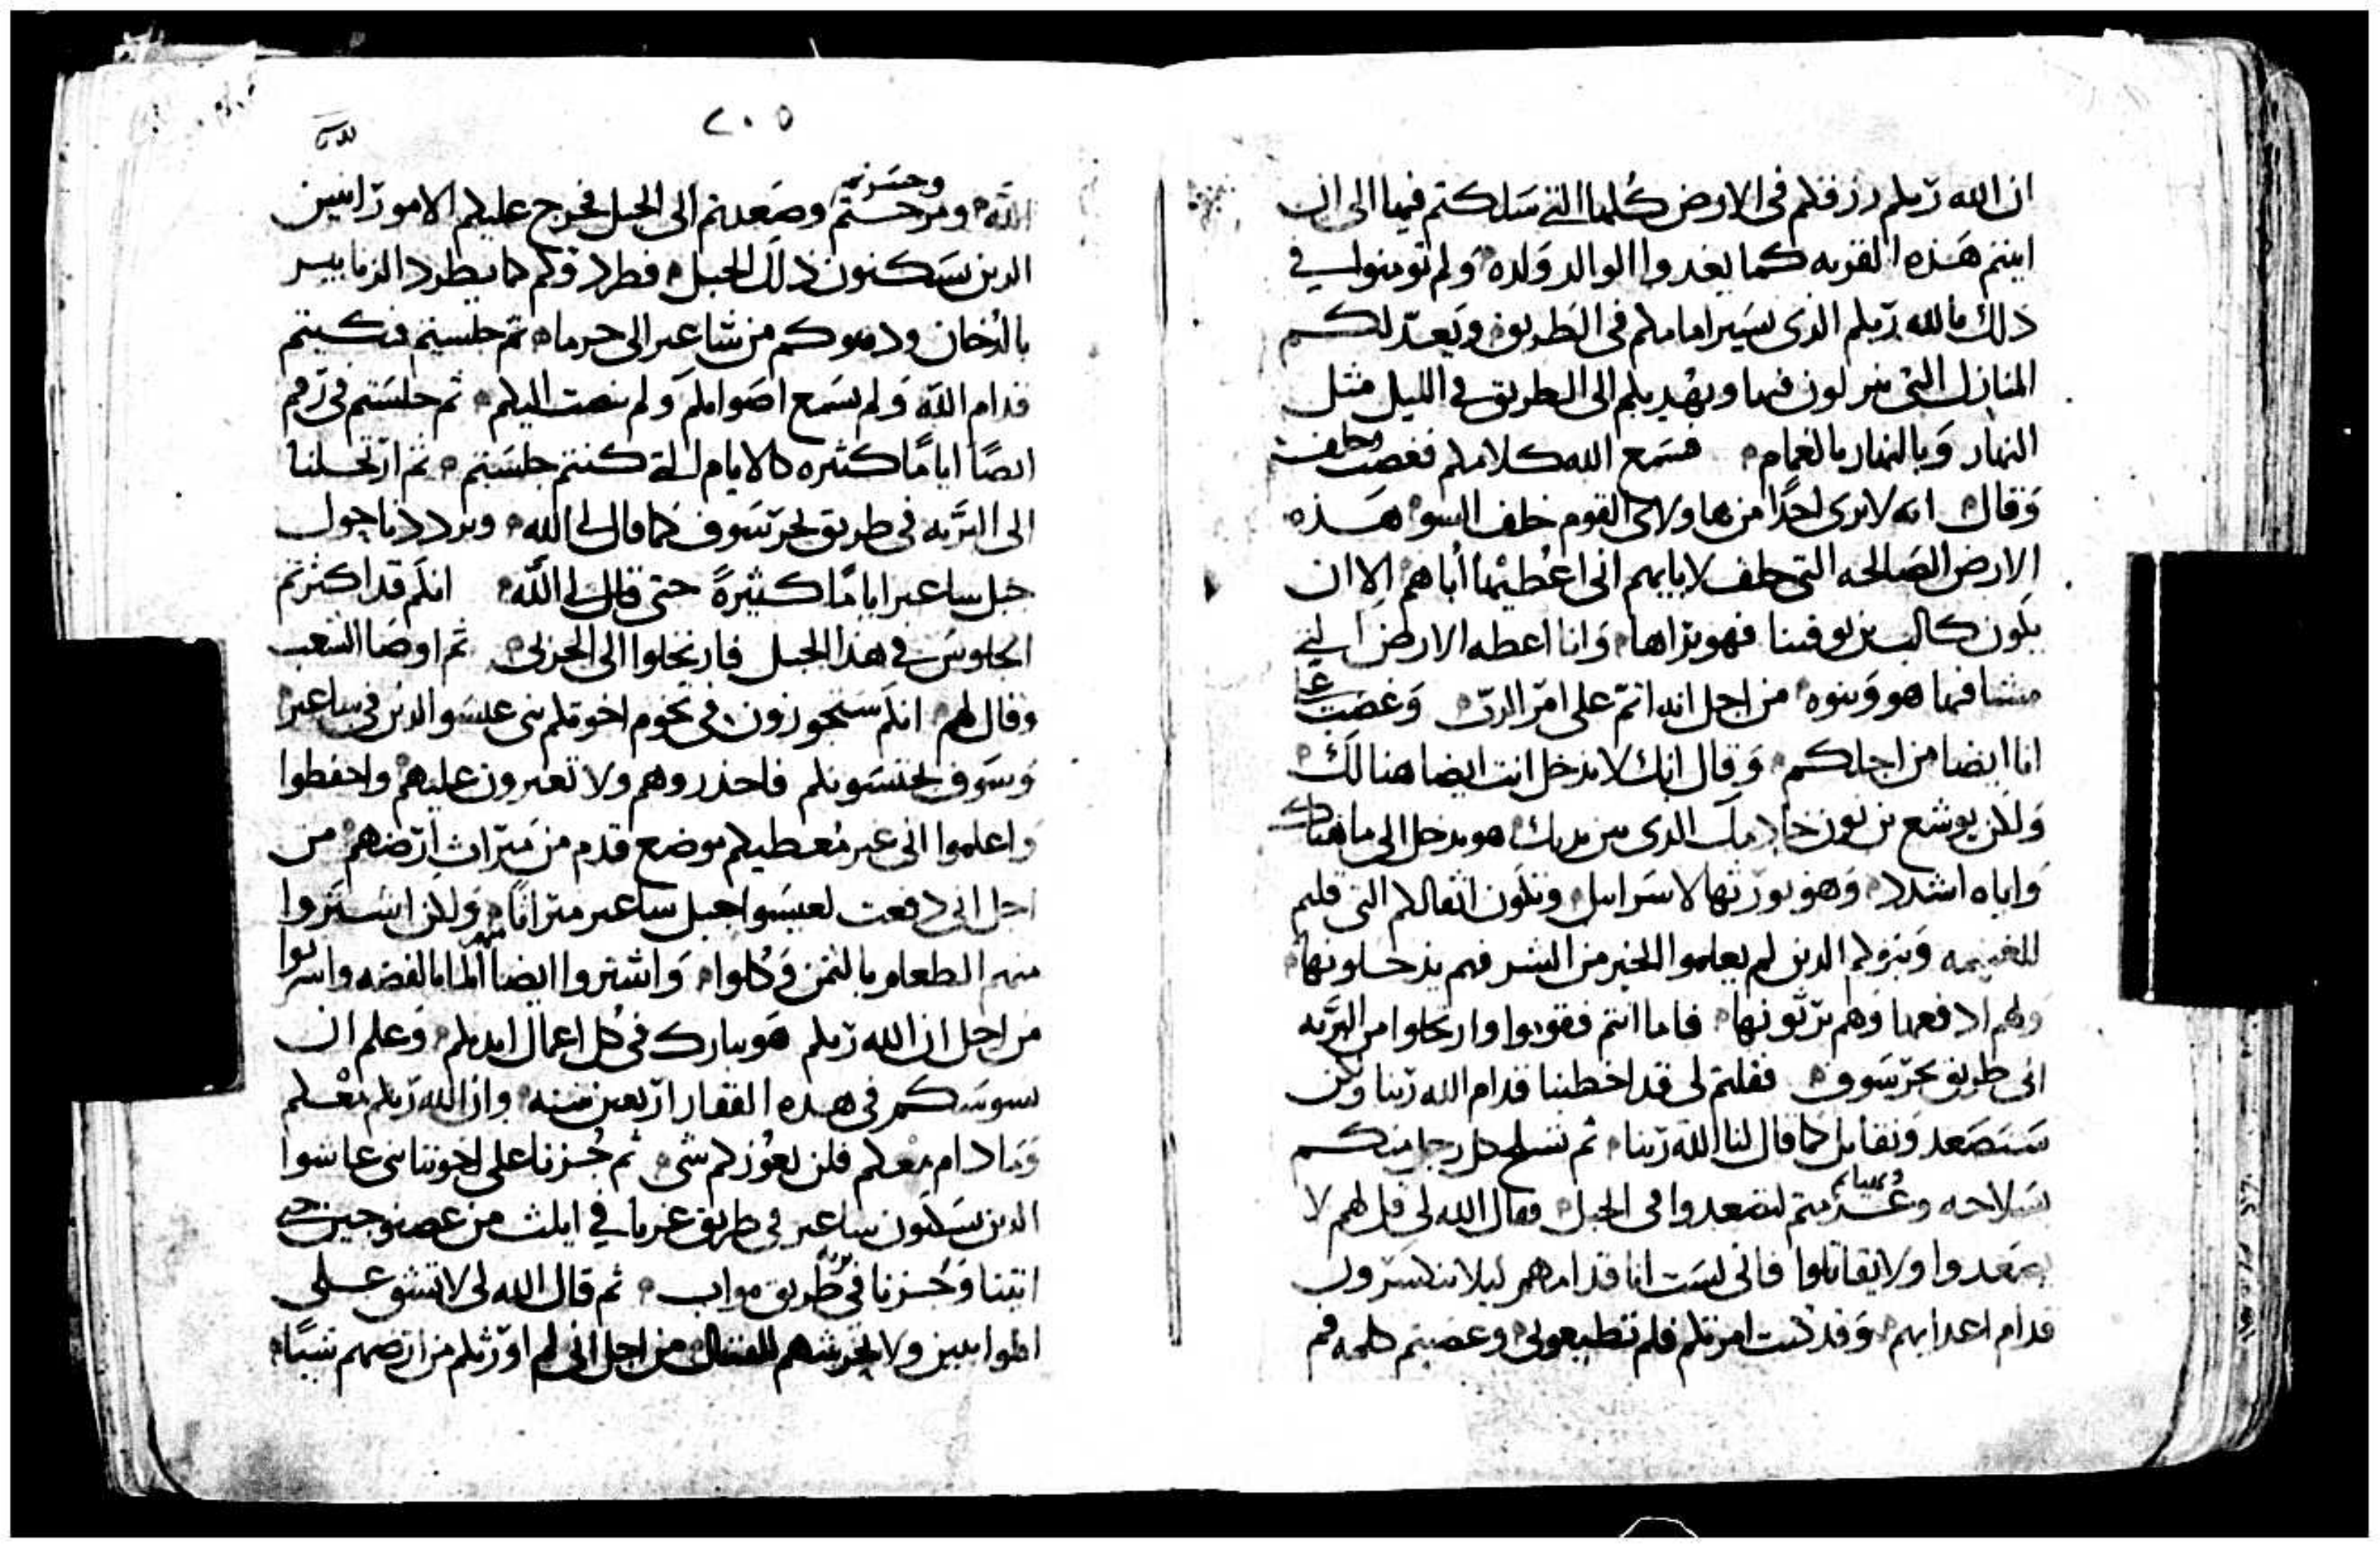 ان الله ربكم رزقكم في الارض كلها التي سلكتم فيها الى ان
اتيتم هذه القريه كما يغدوا الوالد ولده ولم تومنوا في
ذلك بالله ربكم الذي يسير امامكم في الطريق ويعد لكم
المنازل التي تنزلون فيها ويهديكم الى الطريق في الليل مثل
النهار وبالنهار بالغمام فسمع الله كلامكم فغضب وحلف
وقال انه لا يرى احدا من هاولاي القوم خلف السو هذه
الارض الصالحه التي حلف لابايهم اني اعطيها اباهم الا ان
يكون كالب بن يوفنا فهو يراها وانا اعطه الارض التي
مشا فيها هو وبنوه من اجل انه اتم على امر الرب وغضب عليّ
انا ايضا من اجلكم وقال انك لا تدخل انت ايضا هنالك
ولكن يوشع بن نون خادمك الذي بين يديك هو يدخل الى ما هناك
واياه اشدد وهو يورثها لاسرايل وتكون اثقالكم التي قلتم
للغنيمه وبنوكم الذين لم يعلموا الخير من الشر فهم يدخلونها
ولهم ادفعها وهم يرثونها فاما انتم فقوموا وارتحلوا من البريه
الى طريق بحر سوف فقلتم لي قد اخطينا قدام الله ربنا ولكن
سنصعد ونقاتل كما قال لنا الله ربنا ثم تسلح كل رجل منكم
سلاحه وعزمتم لتصعدوا الى الجبل فقال الله لي قل لهم لا
يصعدوا ولا يقاتلوا فاني لست انا قدامهم ليلا ينكسرون
قدام اعدايهم وقد كنت امرتكم فلم تطيعوني وعصيتم كلمه فم
٢٠٥
وجسرتم
الله ومرحتم وصعدتم الى الجبل فخرج عليكم الامورانيين
الذين يسكنون ذلك الجبل فطردوكم كما يطرد الزنابير
بالدخان ودفعوكم من ساعير الى حرما ثم جلستم فبكيتم
قدام الله ولم يسمع اصواتكم ولم ينصت اليكم ثم جلستم في رقم
ايضا اياما كثيره كالايام التي كنتم جلستم ثم ارتحلنا
الى البريه في طريق بحر سوف كما قال لي الله وترددنا حول
جبل ساعير اياما كثيرة حتى قال لي الله انكم قد اكثرتم
الجلوس في هذا الجبل فارتحلوا الى الجربي ثم اوصا الشعب
وقال لهم انكم ستجوزون في تخوم اخوتكم بني عيسو الذين في ساعير
وسوف يخشونكم فاحذروهم ولا تعبرون عليهم واحفظوا
واعلموا اني غير معطيكم موضع قدم من ميراث ارضهم من
اجل اني دفعت لعيسوا جبل ساعير ميراثا ولكن اشتروا
منهم الطعام بالثمن وكلوا واشتروا ايضا منهم الما بالفضه واشربوا
من اجل ان الله ربكم هو بارك في كل اعمال ايديكم وعلم ان
سوسكم في هذه القفار اربعين سنه وان الله ربكم معكم
وما دام معكم فلن يعوزكم شي ثم جزنا على اخوتنا بني عاشوا
الذين يسكنون ساعير في طريق غربا في ايلث من عصنوجبر حتى
اتينا وجزنا في طريق بريه مواب ثم قال الله لي لا تشق على
الموابيين ولا تحرشهم للقتال من اجل اني لم اورثكم من ارضهم شيا